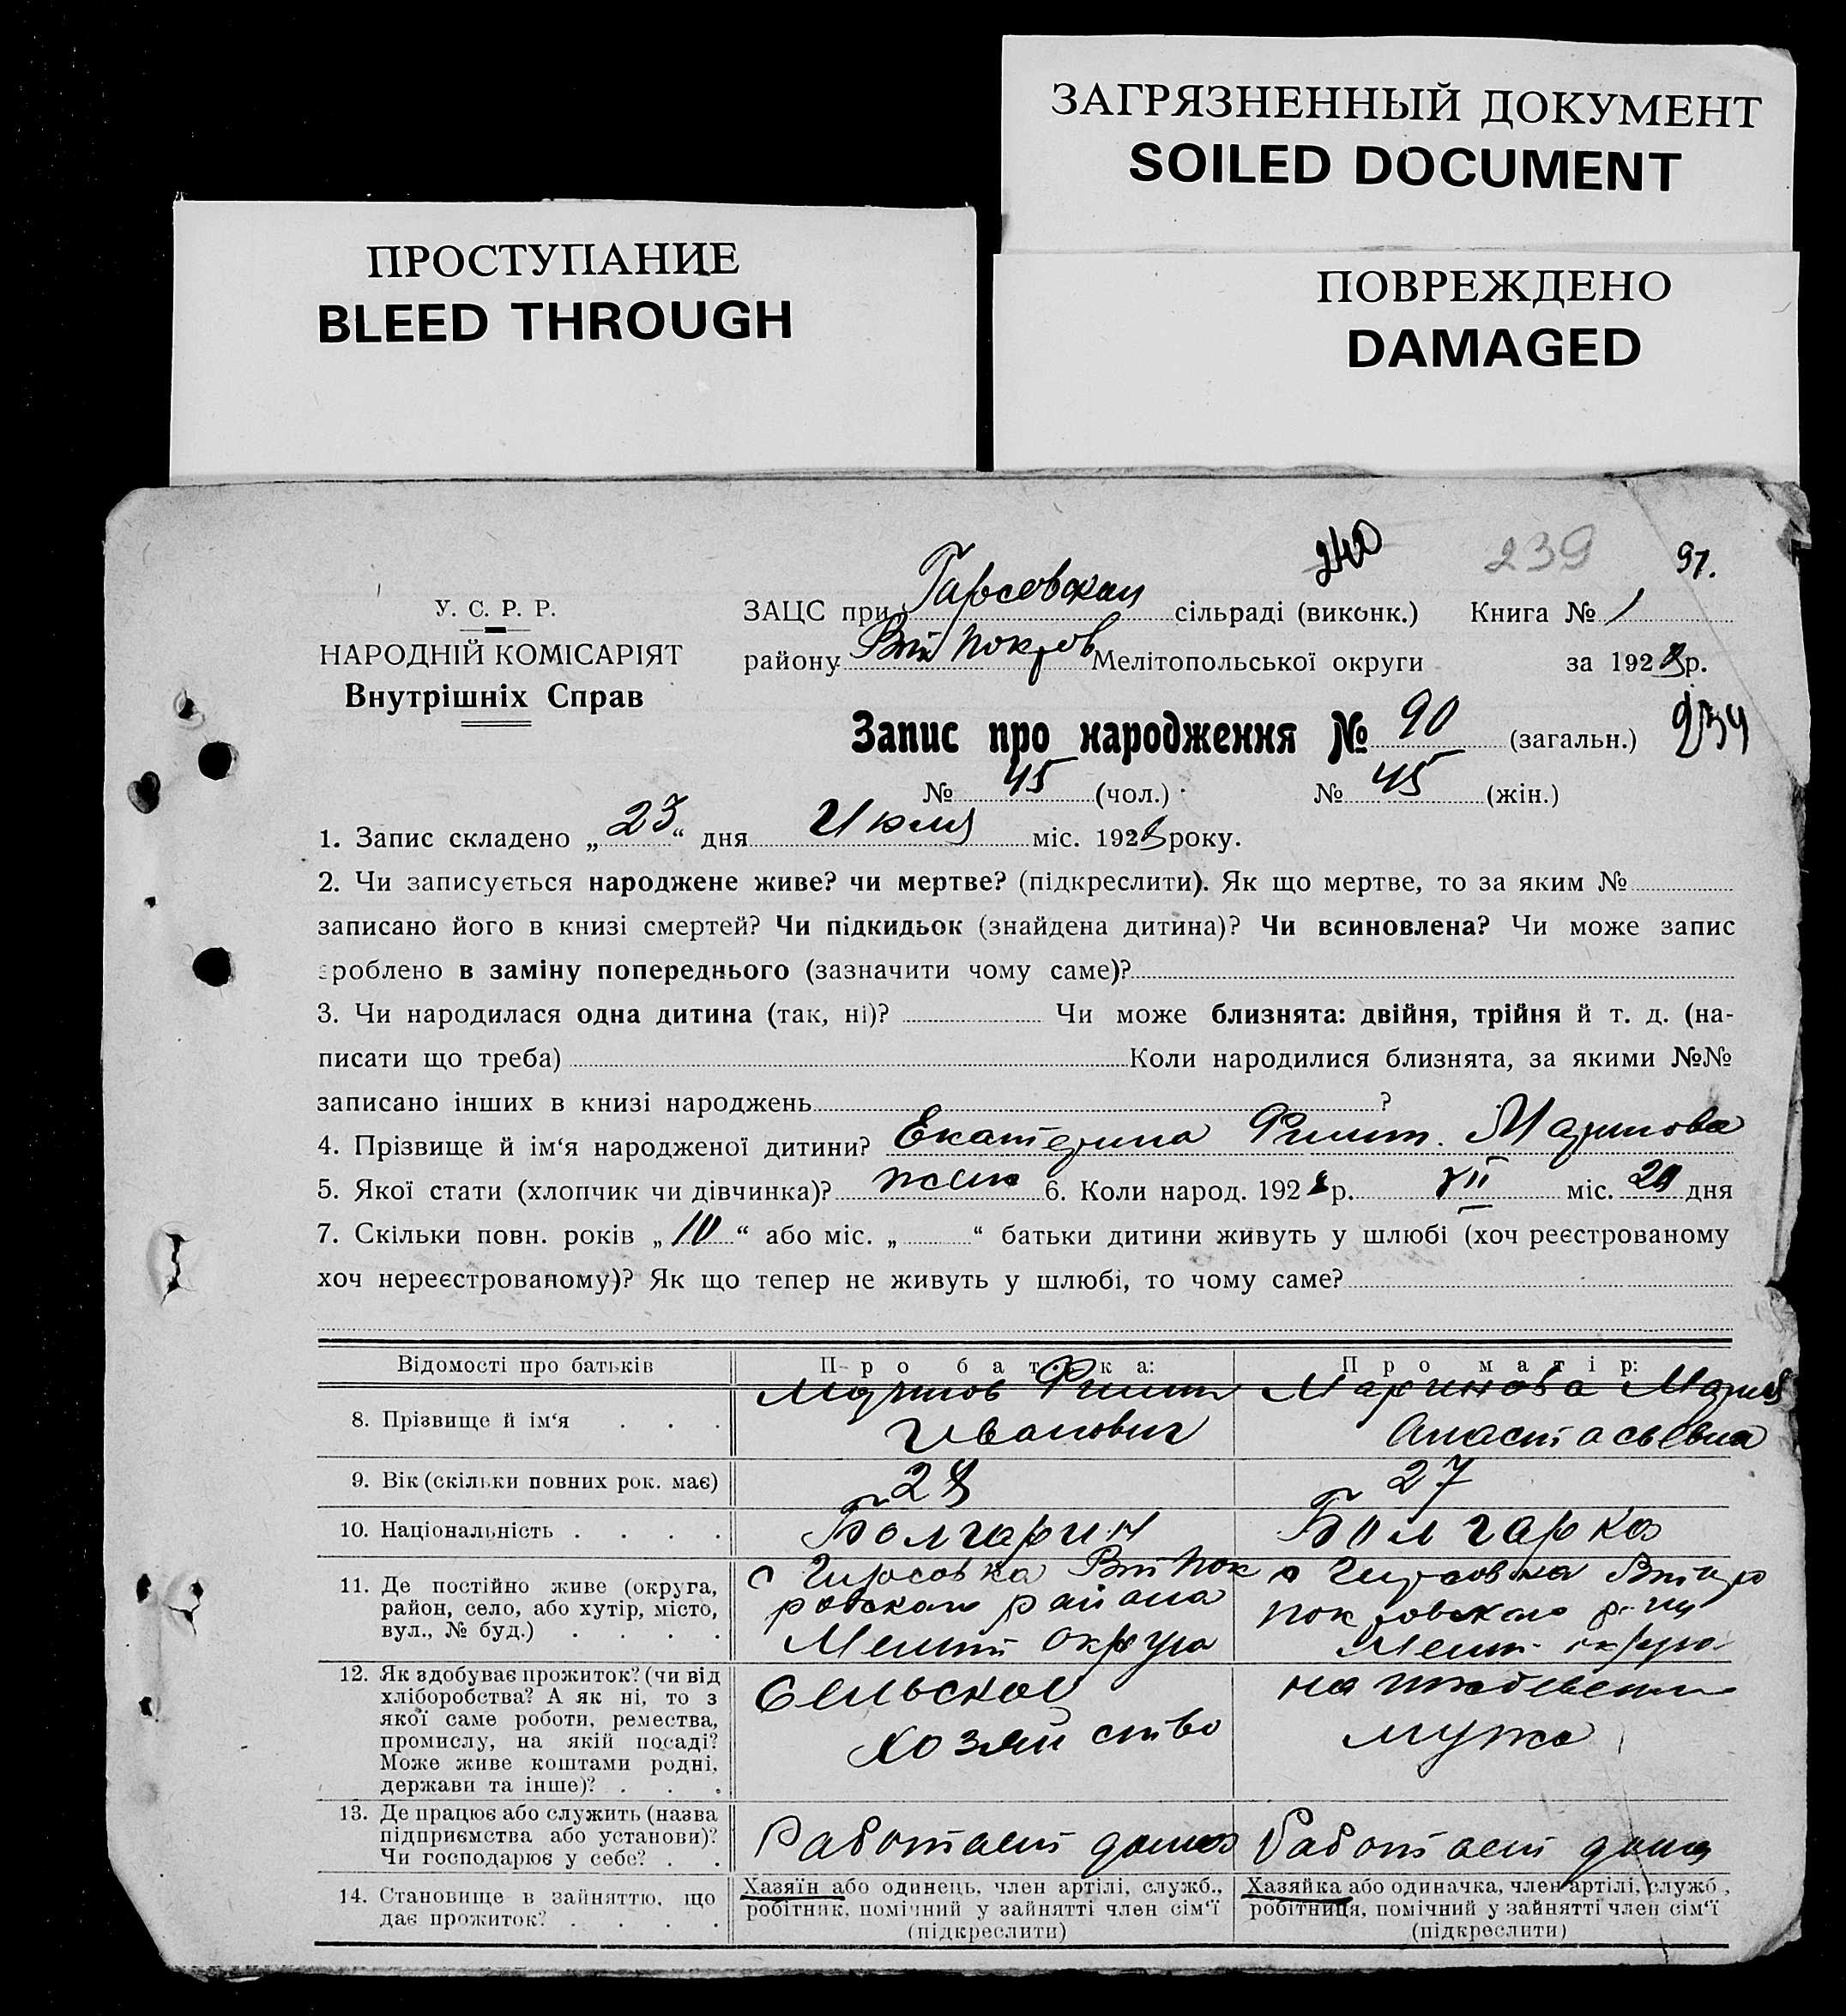 ЗАГРЯЗНЕННЫЙ ДОКУМЕНТ
SOILED DOCUMENT
ПРОСТУПАНИЕ
BLEED THROUGH
ПОВРЕЖДЕНО
DAMAGED
240 239 91.
У. С. Р. Р.
НАРОДНІЙ КОМІСАРІЯТ
Внутрішніх Справ
ЗАЦС при сільраді (виконк.) Книга № 1
району Вт Покров Мелітопольської округи за 1928 р.
Запис про народження № 90 (загальн.) 234
№ 45 (чол.) № 45 (жін.)
1. Запис складено „ 23 “ дня Июля міс. 1928 року.
2. Чи записується народжене живе? чи мертве? (підкреслити). Як що мертве, то за яким №
записано його в книзі смертей? Чи підкидьок (знайдена дитина)? Чи всиновлена? Чи може запис
зроблено в заміну попереднього (зазначити чому саме)?
3. Чи народилася одна дитина (так, ні)? Чи може близнята: двійня, трійня й т. д. (на-
писати що треба) Коли народилися близнята, за якими №№
записано інших в книзі народжень ?
4. Прізвище й ім‘я народженої дитини? Екатерина Филип. Маринова
5. Якої стати (хлопчик чи дівчинка)? жен 6. Коли народ. 1928 р. VII міс. 20 дня
7. Скільки повн. років „ 10 “ або міс. „ “ батьки дитини живуть у шлюбі (хоч реєстрованому
хоч нереєстрованому)? Як що тепер не живуть у шлюбі, то чому саме?
Відомості про батьків Про батька: Про матір:
8. Прізвище й ім‘я . . . Маринов Филип Маринова Мария
Иванович Анастасьевна
9. Вік (скільки повних рок. має) 28 27
10. Національність . . . . Болгарин Болгарка
11. Де постійно живе (округа, с Гирсовка Вт Пок с Гирсовка Втаро
район, село, або хутір, місто, ровскаго района покровскаго р-на
вул., № буд.) . . . . Мелит округа Мелит округа
12. Як здобуває прожиток? (чи від
хліборобства? А як ні, то з Сельское на иждевении
якої саме роботи, ремества,
промислу, на якій посаді? хозяйство мужа
Може живе коштами родні,
держави та інше)? . . .
13. Де працює або служить (назва
підприємства або установи)? Работает дома Работает дома
Чи господарює у себе? . .
14. Становище в зайняттю, що Хазяїн або одинець, член артілі, служб., Хазяйка або одиначка, член артілі, служб.,
дає прожиток? . . . . робітник, помічний у зайнятті член сім‘ї робітниця, помічний у зайнятті член сім‘ї
(підкреслити) (підкреслити)